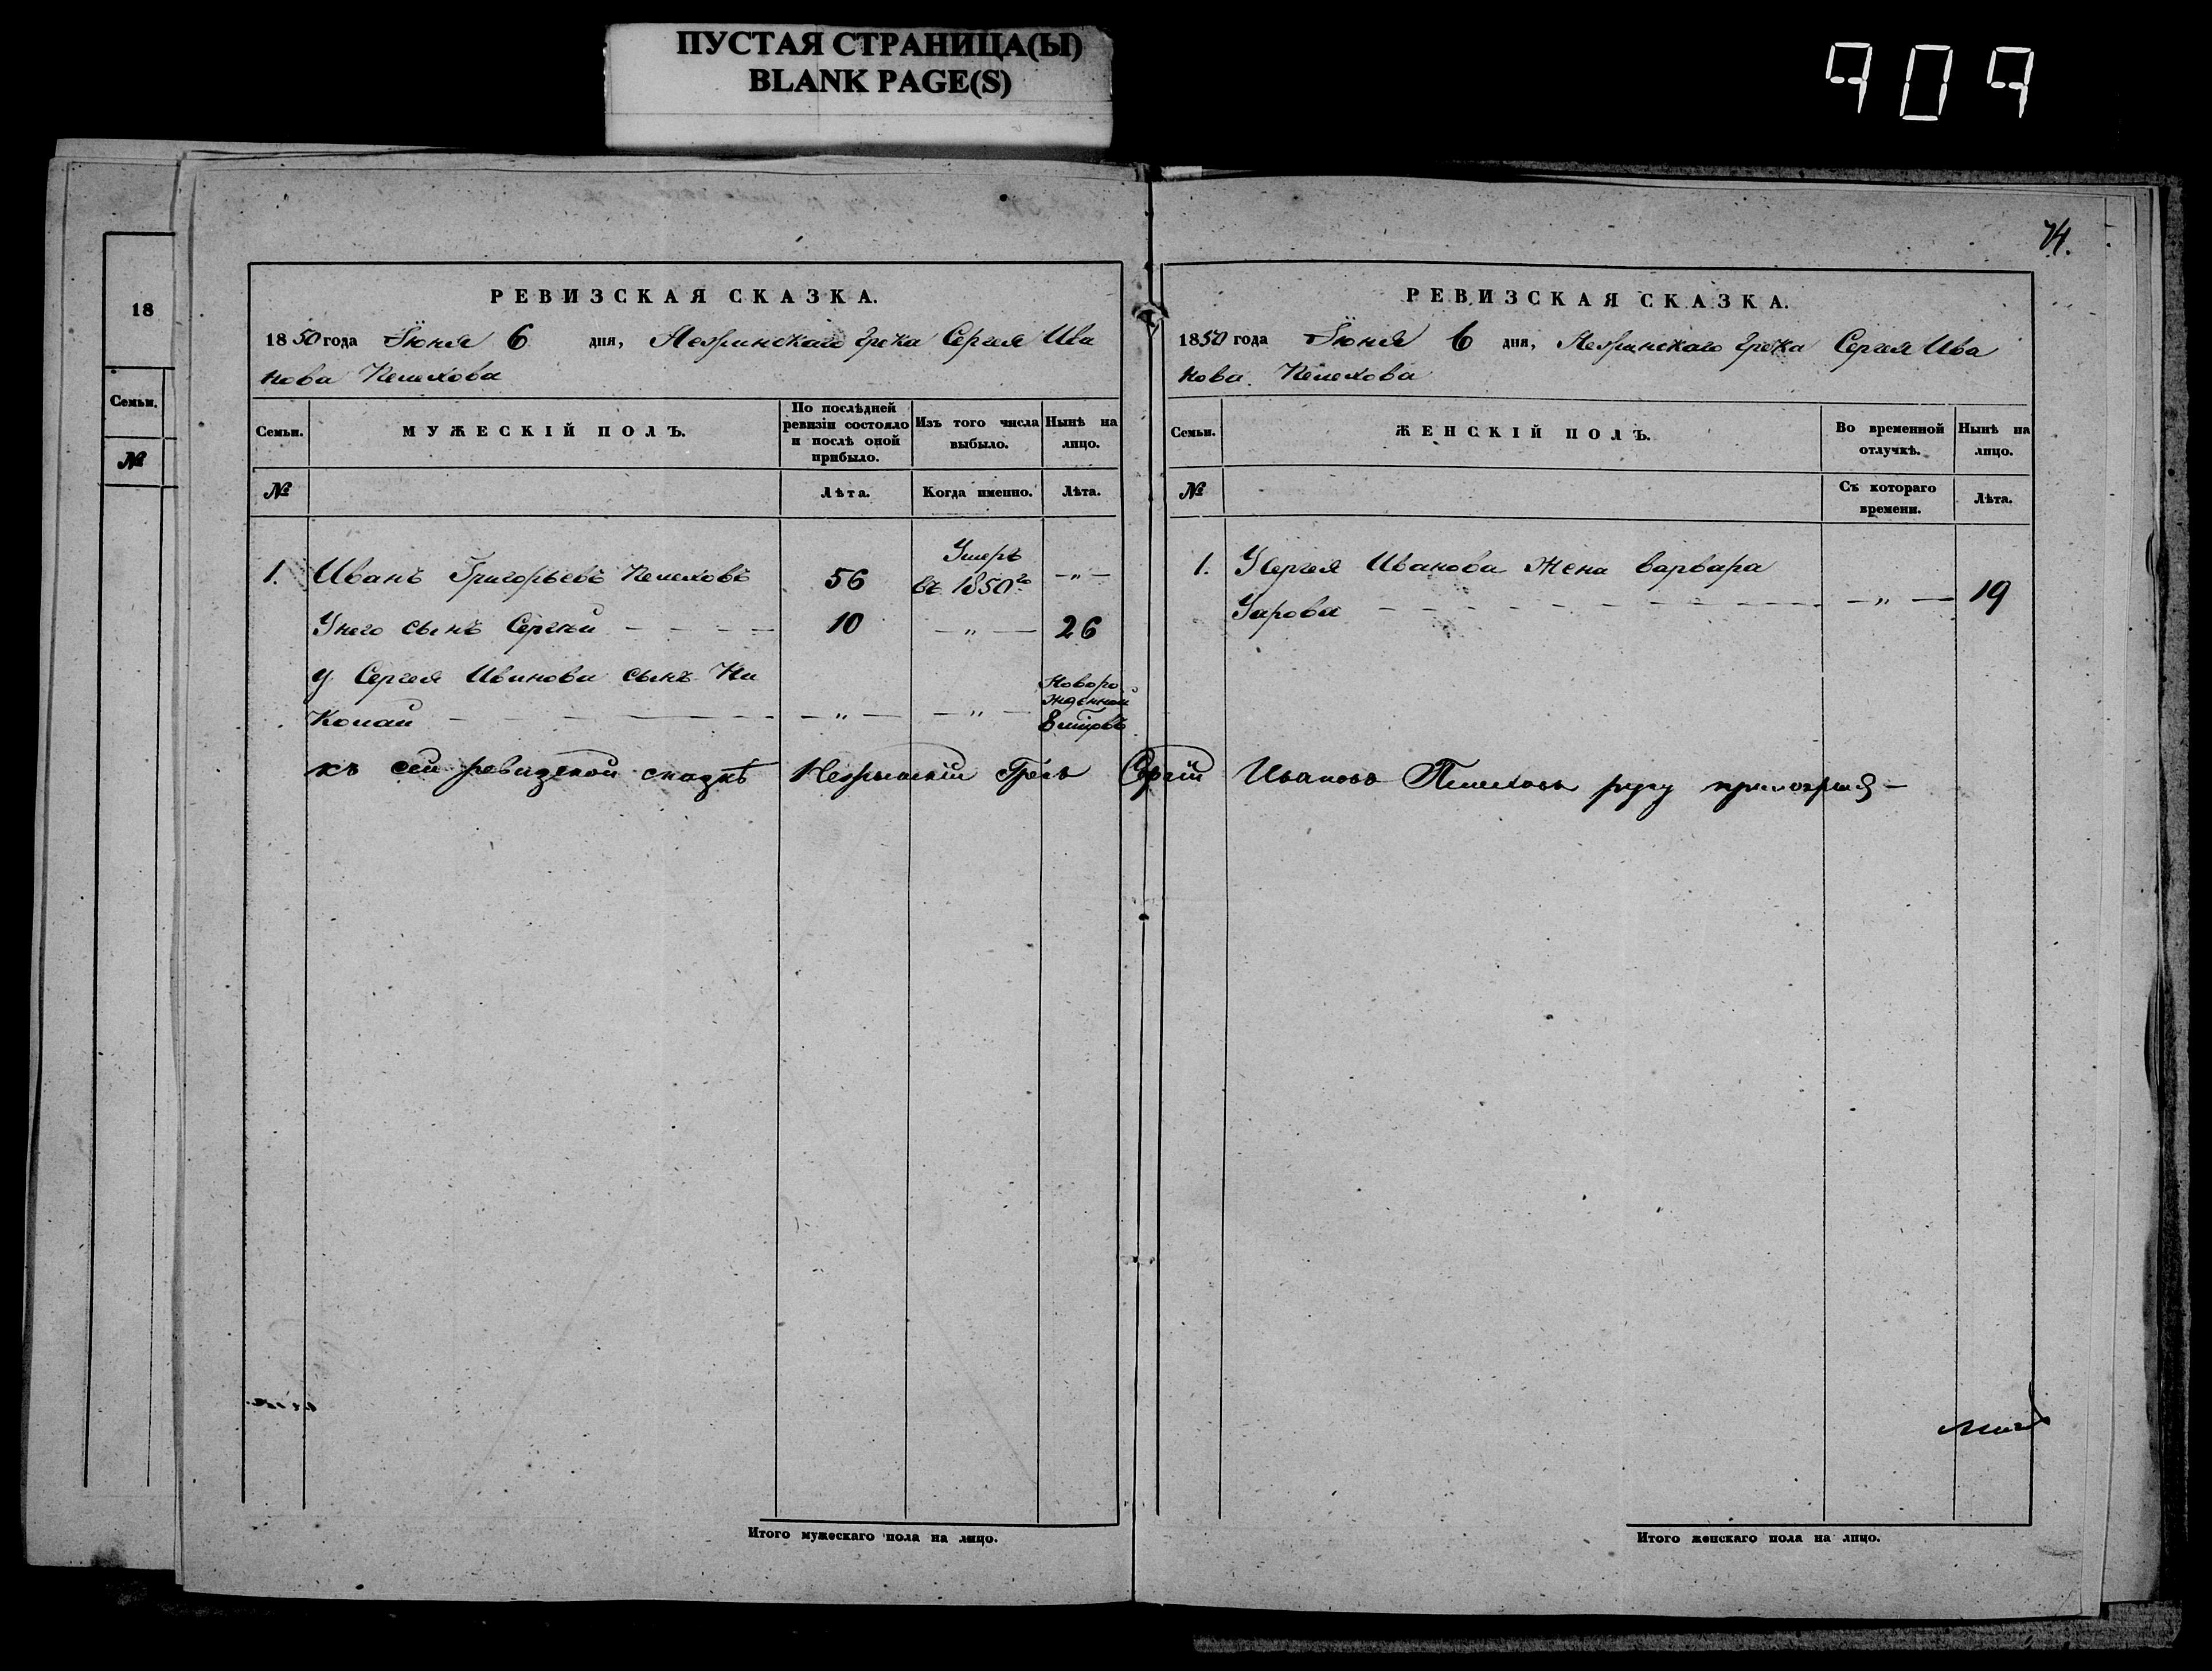 ПУСТАЯ СТРАНИЦА(Ы)
BLANK PAGE(S)
909
18
Семьи.
№
РЕВИЗСКАЯ СКАЗКА.
1850 года Іюня 6 дня, Нежинскаго Грека Сергея Ива
нова Пелехова
Семьи.
МУЖЕСКІЙ ПОЛЪ.
По послѣдней ревизіи состояло и послѣ оной прибыло.
Изъ того числа выбыло.
Нынѣ на лицо.
№
Лѣта.
Когда именно.
Лѣта.
1. Иванъ Григорьевъ Пелеховъ 56 Умеръ въ 1850го —„—
У него сынъ Сергѣй — — — 10 —„— 26
У Сергея Иванова сынъ Ни
колай — — — —„— —„— Новорожденной
къ сей ревизской сказкѣ Нежинскій Грекъ Сергій Ивановъ Пелеховъ руку приложилъ —
Итого мужескаго пола на лицо.
74.
РЕВИЗСКАЯ СКАЗКА.
1850 года Іюня 6 дня, Нежинскаго Грека Сергея Ива
нова Пелехова
Семьи.
ЖЕНСКІЙ ПОЛЪ.
Во временной отлучкѣ.
Нынѣ на лицо.
№
Съ котораго времени.
Лѣта.
1. У Сергея Иванова жена Варвара
—„— 19
Итого женскаго пола на лицо.